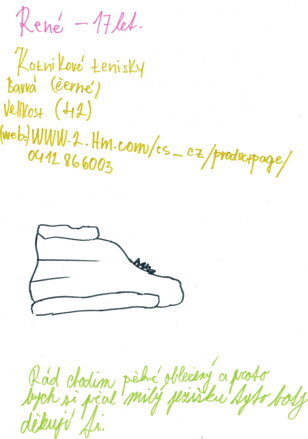 René - 17 let.
Kotníkové tenisky
Barva (černé)
Velikost (42)
(web:) WWW.2.Hm.com/cs_cz/productpage/
0412866003
Rád chodím pěkně oblečený a proto
bych si přál milý ježíšku tyto boty
děkuji Ti.